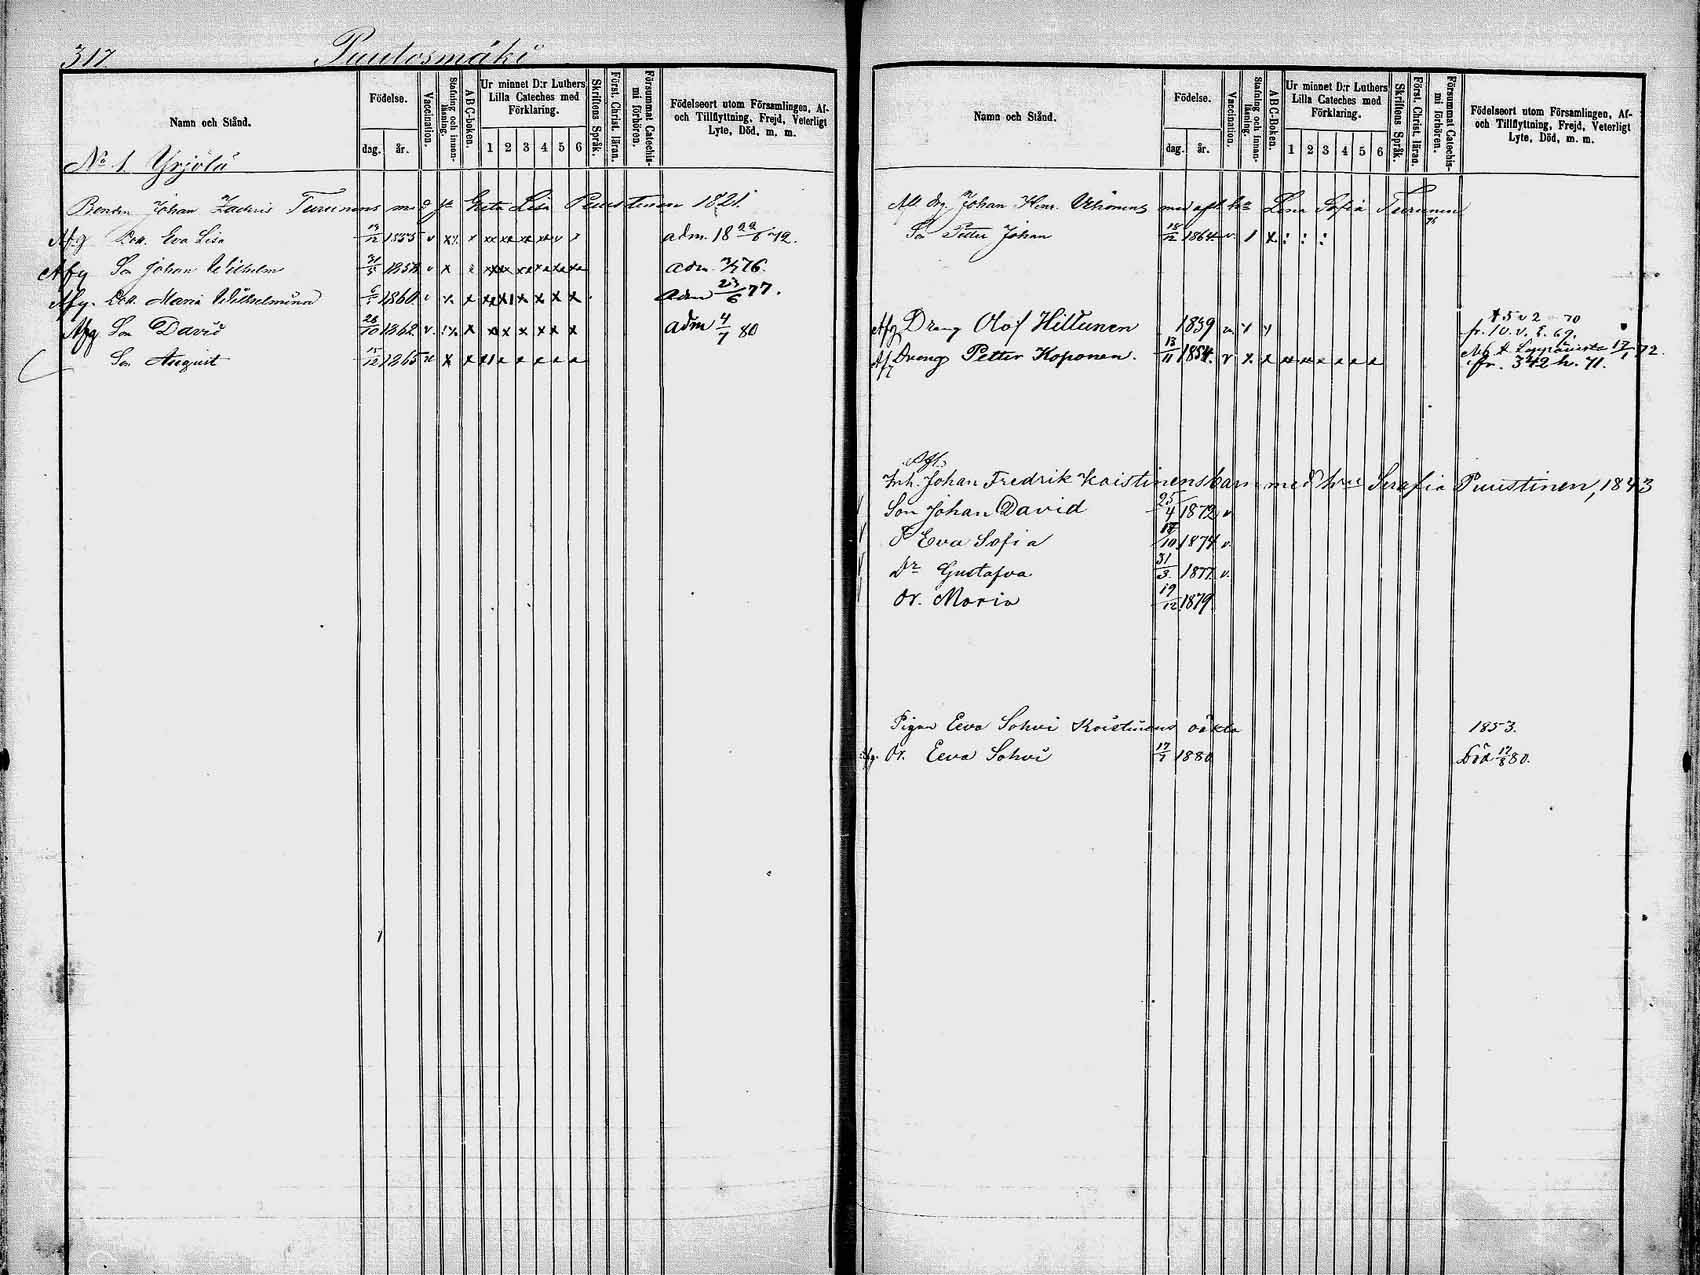 317. Puutosmäki
Namn och Stånd.
Födelse.
dag. år.
Vaccination.
Stafning och innan-läsning.
ABC-boken.
Ur minnet D:r Luthers Lilla Cateches med Förklaring.
1 2 3 4 5 6
Skriftens Språk.
Först. Christ. läran.
Försummat Catechis-mi förhören.
Födelseort utom Församlingen, Af- och Tillflyttning, Frejd, Veterligt Lyte, Död, m. m.
No 1 Yrjölä
Johan Turunens med Greta Lisa Puustinen 1821.
Afg Dott. Eva Lisa 1855 v adm. 18 72.
Afg Son Johan Wilhelm 31/5 v x adm. 76.
Afg. Dott. Maria Wilhelmina 1860 x x x x x x adm 23/6 77.
Afg Son David 28/10 1862 v. x x x x x x adm 4/7 80
Son August 15/12 1865 v x x x x x x x
Namn och Stånd.
Födelse.
dag. år.
Vaccination.
Stafning och innan-läsning.
ABC-Boken.
Ur minnet D:r Luthers Lilla Cateches med Förklaring.
1 2 3 4 5 6
Skriftens Språk.
Först. Christ. läran.
Försummat Catechis-mi förhören.
Födelseort utom Församlingen, Af- och Tillflyttning, Frejd, Veterligt Lyte, Död, m. m.
Johan Henr. med Lena Sofia Turunen
Petter Johan 1864 v. x
Afg Dreng Olof Hiltunen 1839 fr. 69.
Afg Dreng Petter Koponen. 13/11 1854. v x x x x x x x 17/1 72.
fr. 342 h. 71.
Afg.
Inh. Johan Fredrik Koistinens barn med hus Serafia Puustinen, 1843
Son Johan David 25/4 1872 v
D Eva Sofia 10 1874 v.
Dr Gustafva 31/3. 1877 v.
Dr. Maria 19/12 1879
Pigan Eeva Sohvi Koistinens oäkta 1853.
Afg. Dr. Eeva Sohvi 17/7 1880 Död 17/8 80.